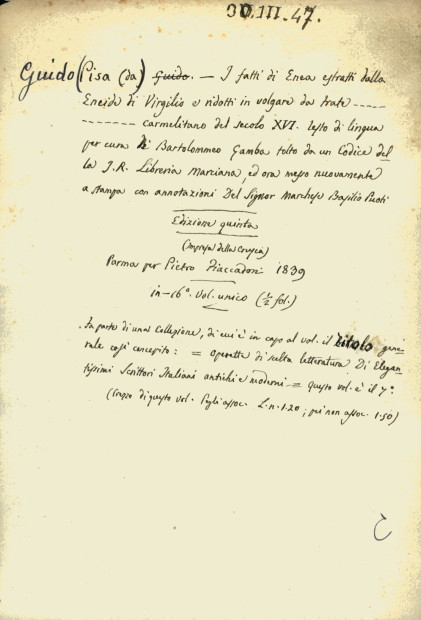 30.III.47.
Guido (Pisa (da) Guido. — I fatti di Enea estratti dalla
Eneide di Virgilio e ridotti in volgare da frate -----
-------- carmelitano del secolo XVI. testo di lingua
per cura di Bartolommeo Gamba tolto da un Codice del
la I. R. Libreria Marciana, ed ora messo nuovamente
a stampa con annotazioni Del Signor Marchese Basilio Puoti
Edizione quinta
(Impresa della Crusca)
Parma per Pietro Fiaccadori 1839
in-16°. Vol. unico (½ fol.)
Fa parte di una Collezione, di cui è in capo al vol. il titolo gene-
rale così concepito: = Operette di scelta letteratura Di Elegan
tissimi Scrittori Italiani antichi e moderni = questo vol. è il 7°
(Prezzo di questo vol. Pegli assoc. L. n. 1.20; pei non assoc. 1.50)